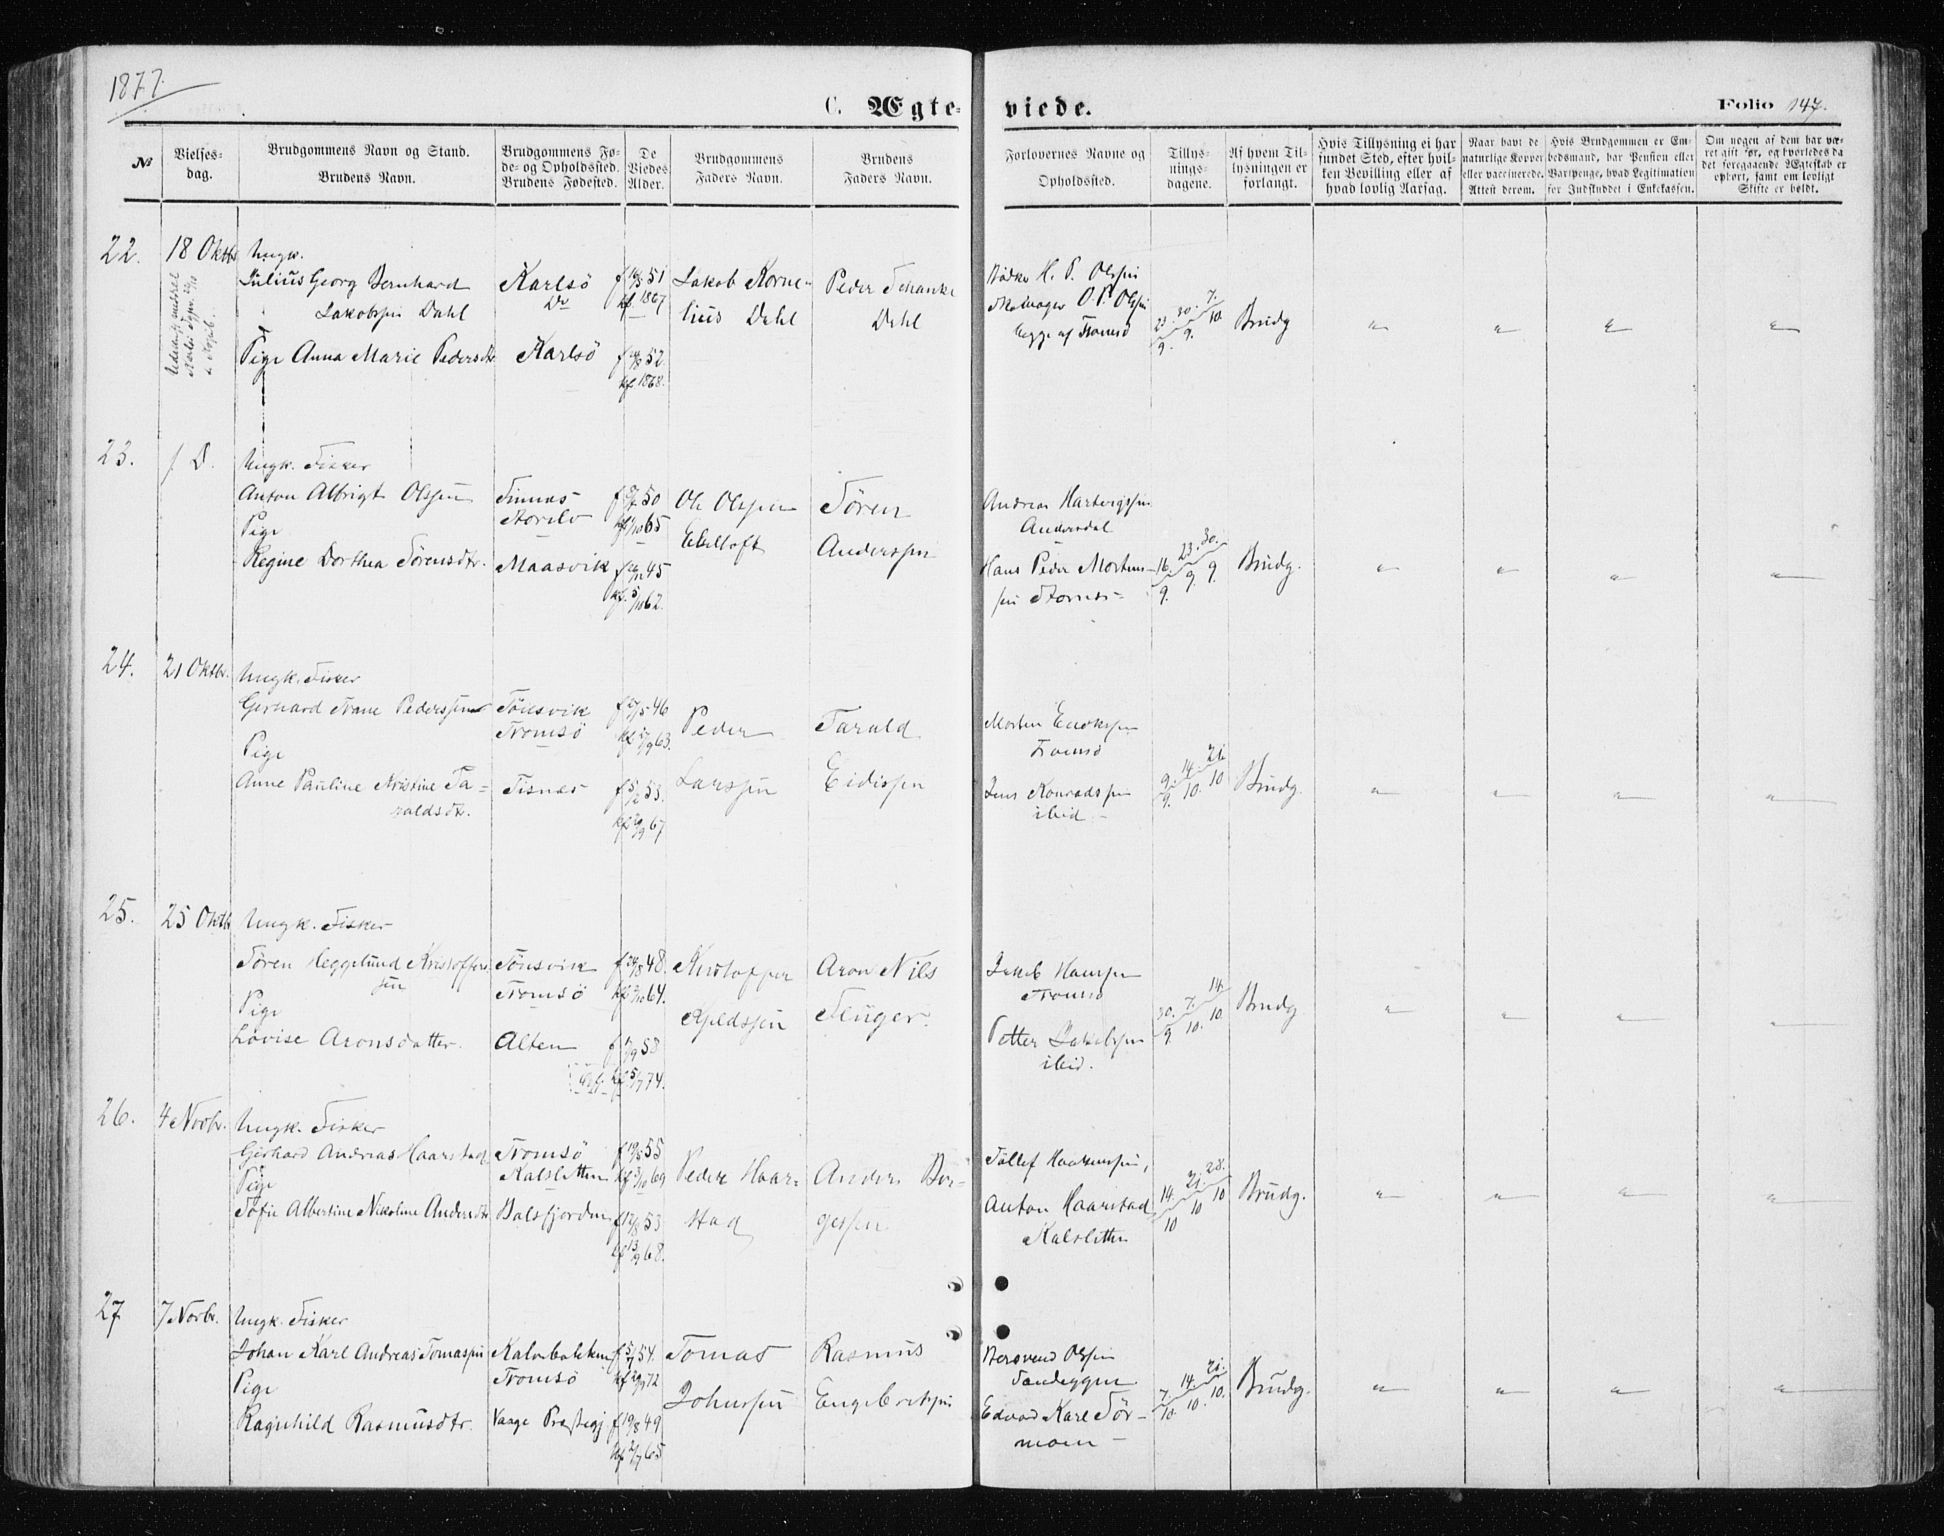 1877.
C. Ægteviede.
Folio 147.
№
Vielses-
dag.
Brudgommens Navn og Stand.
Brudens Navn.
Brudgommens Fø-
de- og Opholdssted.
Brudens Fødested.
De
Viedes
Alder.
Brudgommens
Faders Navn.
Brudens
Faders Navn.
Forlovernes Navne og
Opholdssted.
Tillys-
nings-
dagene.
Af hvem Til-
lysningen er
forlangt.
Hvis Tillysning ei har
fundet Sted, efter hvil-
ken Bevilling eller af
hvad lovlig Aarsag.
Naar havt de
naturlige Kopper
eller vaccinerede.
Attest derom.
Hvis Brudgommen er Em-
bedsmand, har Pension eller
Vartpenge, hvad Legitimation
for Indskuddet i Enkekassen.
Om nogen af dem har væ-
ret gift før, og hvorledes da
det foregaaende Ægteskab er
ophørt, samt om lovligt
Skifte er holdt.
22.
18 Oktbr
Ungk.
Julius Georg Bernhard
Jakobsen Dahl
Pige Anna Marie Pedersdtr
Karlsö
Do
Karlsö
51
kf 1867
52
kf 1868.
Jakob Korne-
lius Dahl
Peder Schanke
Dahl
Bödker H. P. Olssen
Skomager O. P. Olssen
begge af Tromsö
23. 30. 7.
9. 9. 10.
Brudg
23.
D.
Ungk. Fisker
Anton Albrigt Olssen
Pige
Regine Dorthea Sörensdtr.
Finnæs
Maasvik
50
65
45
62.
Ole Olssen
Ebeltoft
Sören
Anderssen
Andreas Hartvigssen
Andersdal
Hans Peder Mortens-
sen
16. 23. 30.
9. 9. 9.
Brudg.
24.
21 Oktbr.
Ungk. Fisker
Gerhard Trane Pederssen
Pige
Anne Pauline Kristine Ta-
raldsdtr.
Tönsvik
Tromsö
Tisnes
46
63.
53.
67
Peder
Larssen
Tarald
Eidissen
Morten Erikssen
Tromsö
Jens Konradssen
ibid.
9. 14. 21.
9. 10. 10
Brudg.
25.
25 Oktb
Ungk. Fisker
Sören Heggelund Kristoffers
sen
Pige
Lovise Aronsdatter.
Tönsvik
Tromsö
Alten
48.
64.
58
74.
Kristoffer
Kjeldssen
Aron Nils
Jakob Hanssen
Tromsö
Petter Jakobssen
ibid.
30. 7. 14.
9. 10. 10.
Brudg.
26.
4 Novbr.
Ungk. Fisker
Gerhard Andreas Haarstad
Pige
Sofie Albertine Nikoline Andersdtr
Tromsö
Kalsletten
Balsfjorden
55
69
53
68.
Peder Haar-
stad
Anders Bør-
gessen
Tollef Haakenssen,
Anton Haarstad
Kalsletten
14. 21. 28.
10 10 10
Brudg.
27
7 Novbr.
Ungk. Fisker
Johan Karl Andreas Tomassen
Pige
Ragnhild Rasmusdtr.
Kalvebakken
Tromsö
Vaage Præstegj
54.
72
49
65
Tomas
Johnssen
Rasmus
Engebrektssen
Bersvend Olssen
Sandeggen
Edvard Karl Sör-
moen
7. 14. 21.
10. 10. 10.
Brudg.